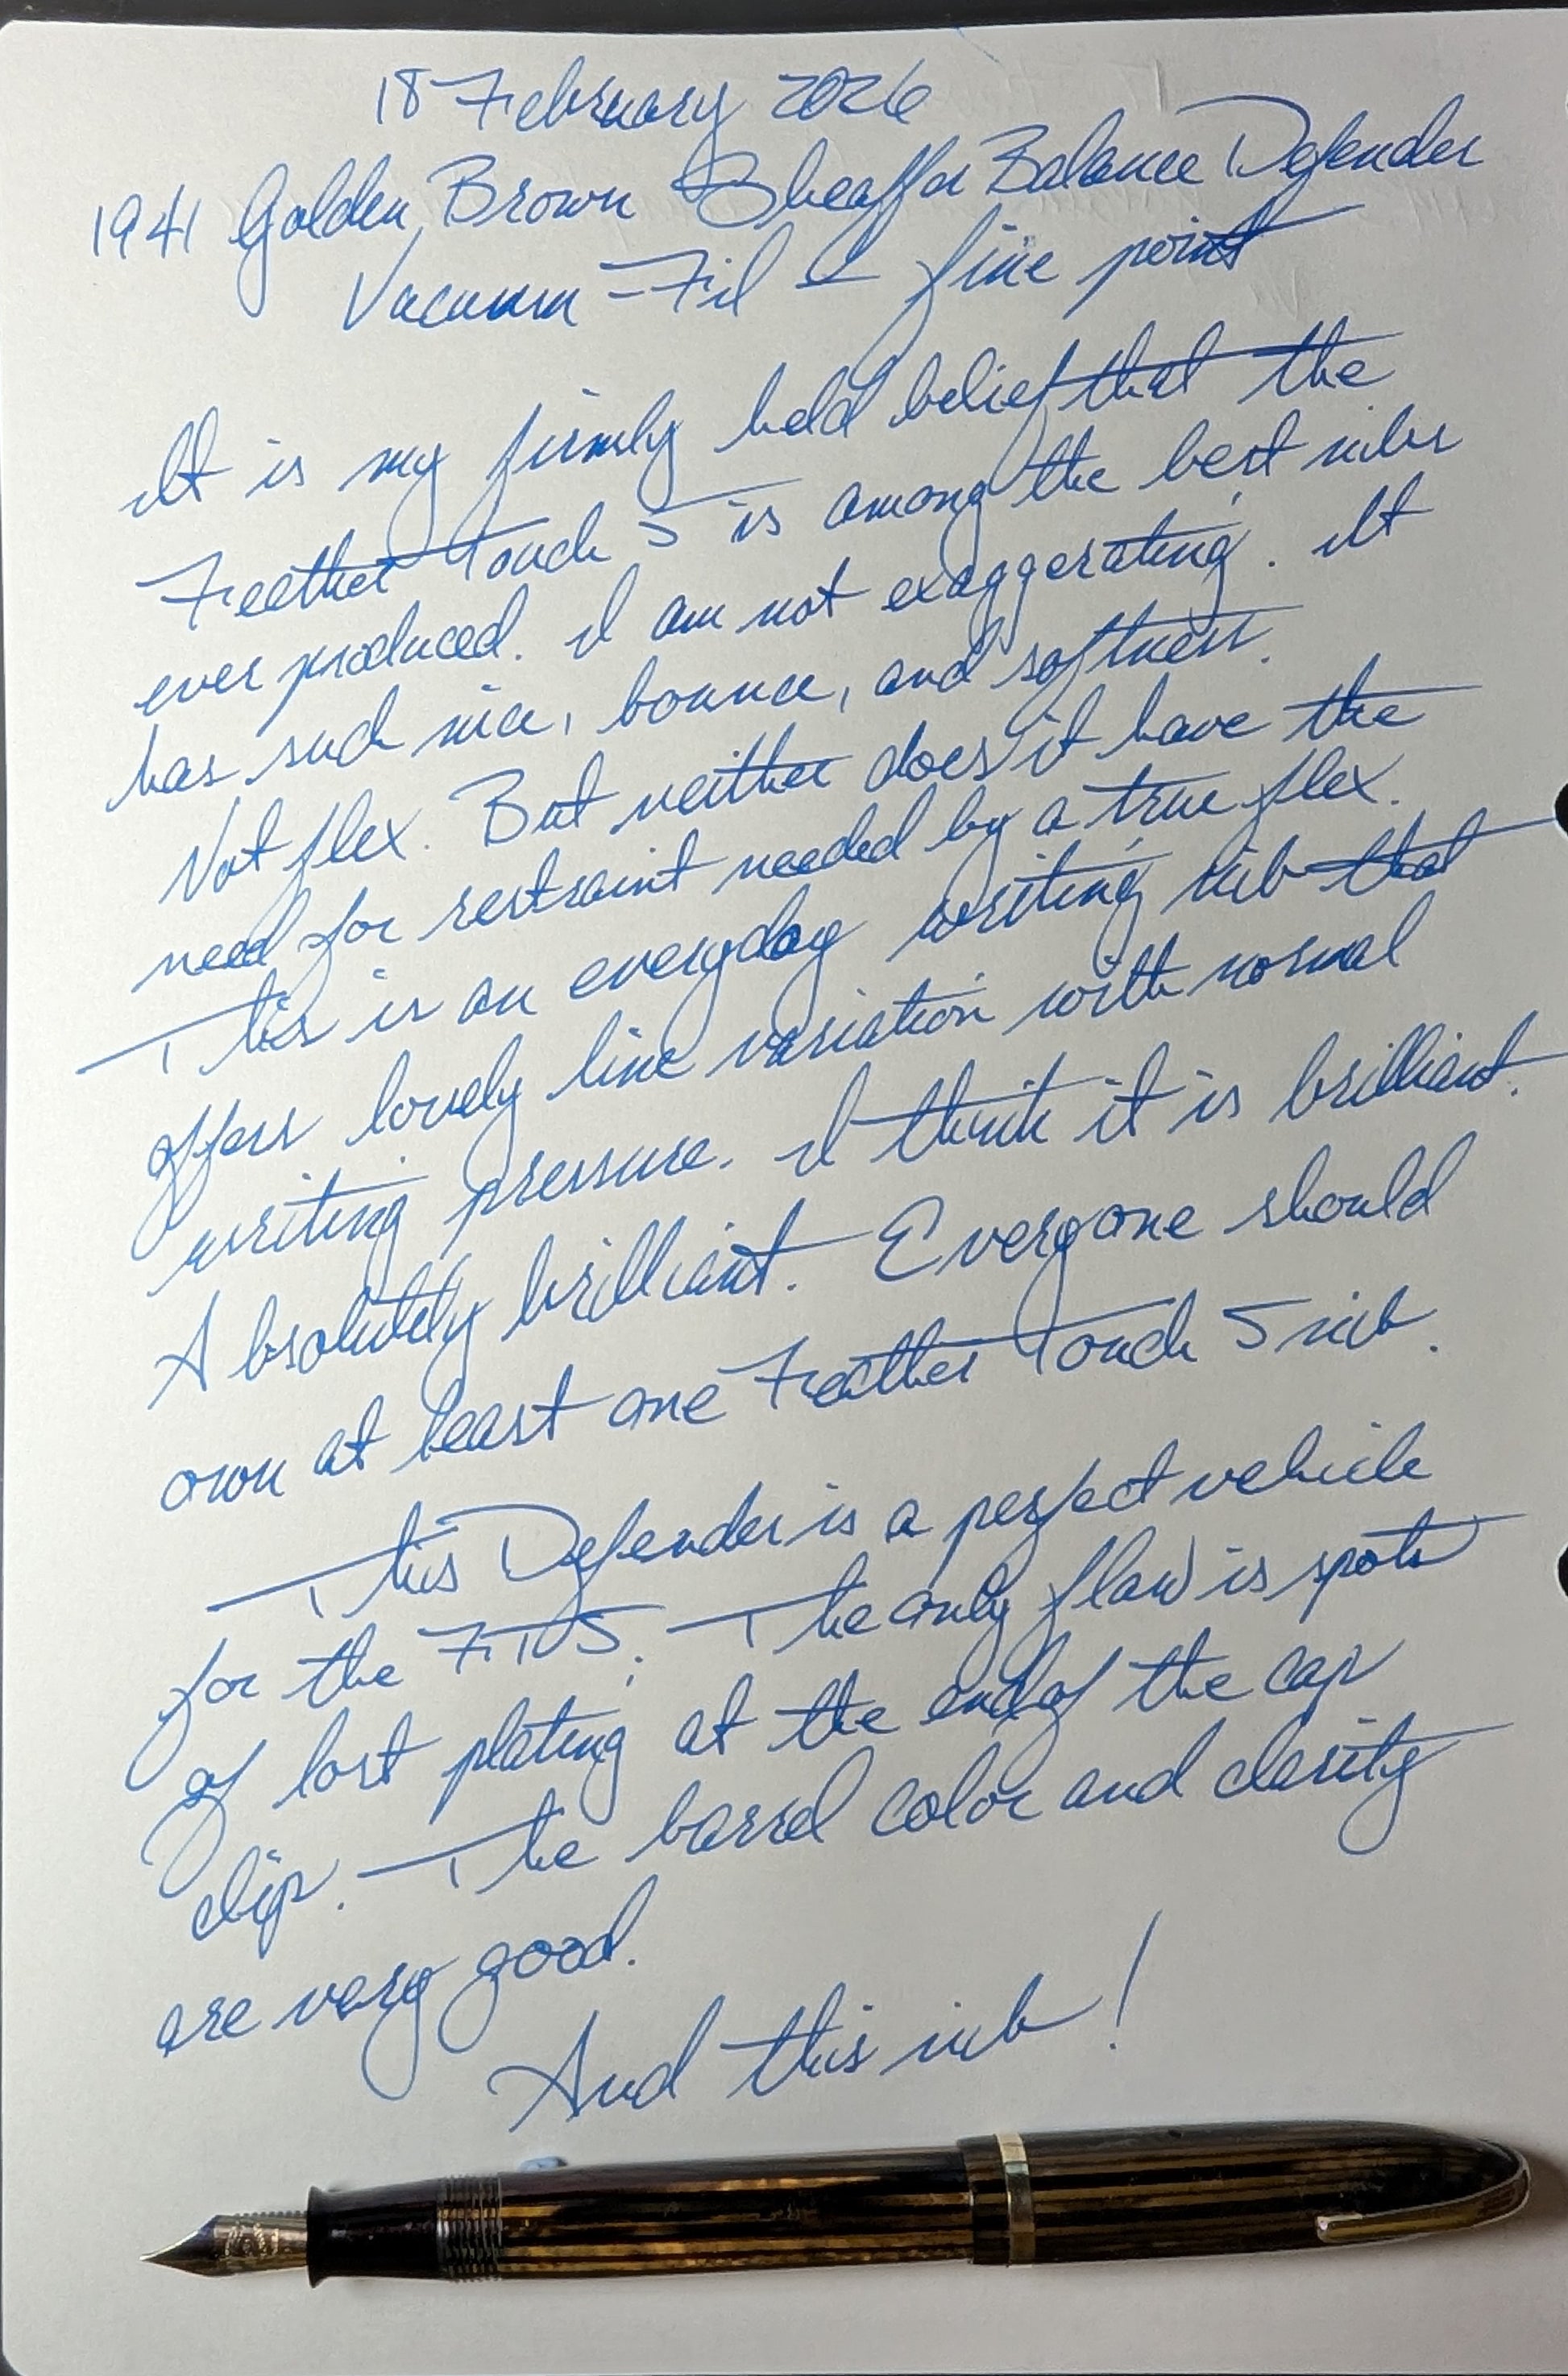 18 February 2026
1941 Golden Brown Sheaffer Balance Defender
Vacuum-Fil - fine point
It is my firmly held belief that the
Feather Touch 5 is among the best nibs
ever produced. I am not exaggerating. It
has such nice, bounce, and softness.
Not flex. But neither does it have the
need for restraint needed by a true flex.
This is an everyday writing nib that
offers lovely line variation with normal
writing pressure. I think it is brilliant.
Absolutely brilliant. Everyone should
own at least one Feather Touch 5 nib.
This Defender is a perfect vehicle
for the FT5. The only flaw is spots
of lost plating at the end of the cap
clip. The barrel color and clarity
are very good.
And this nib!